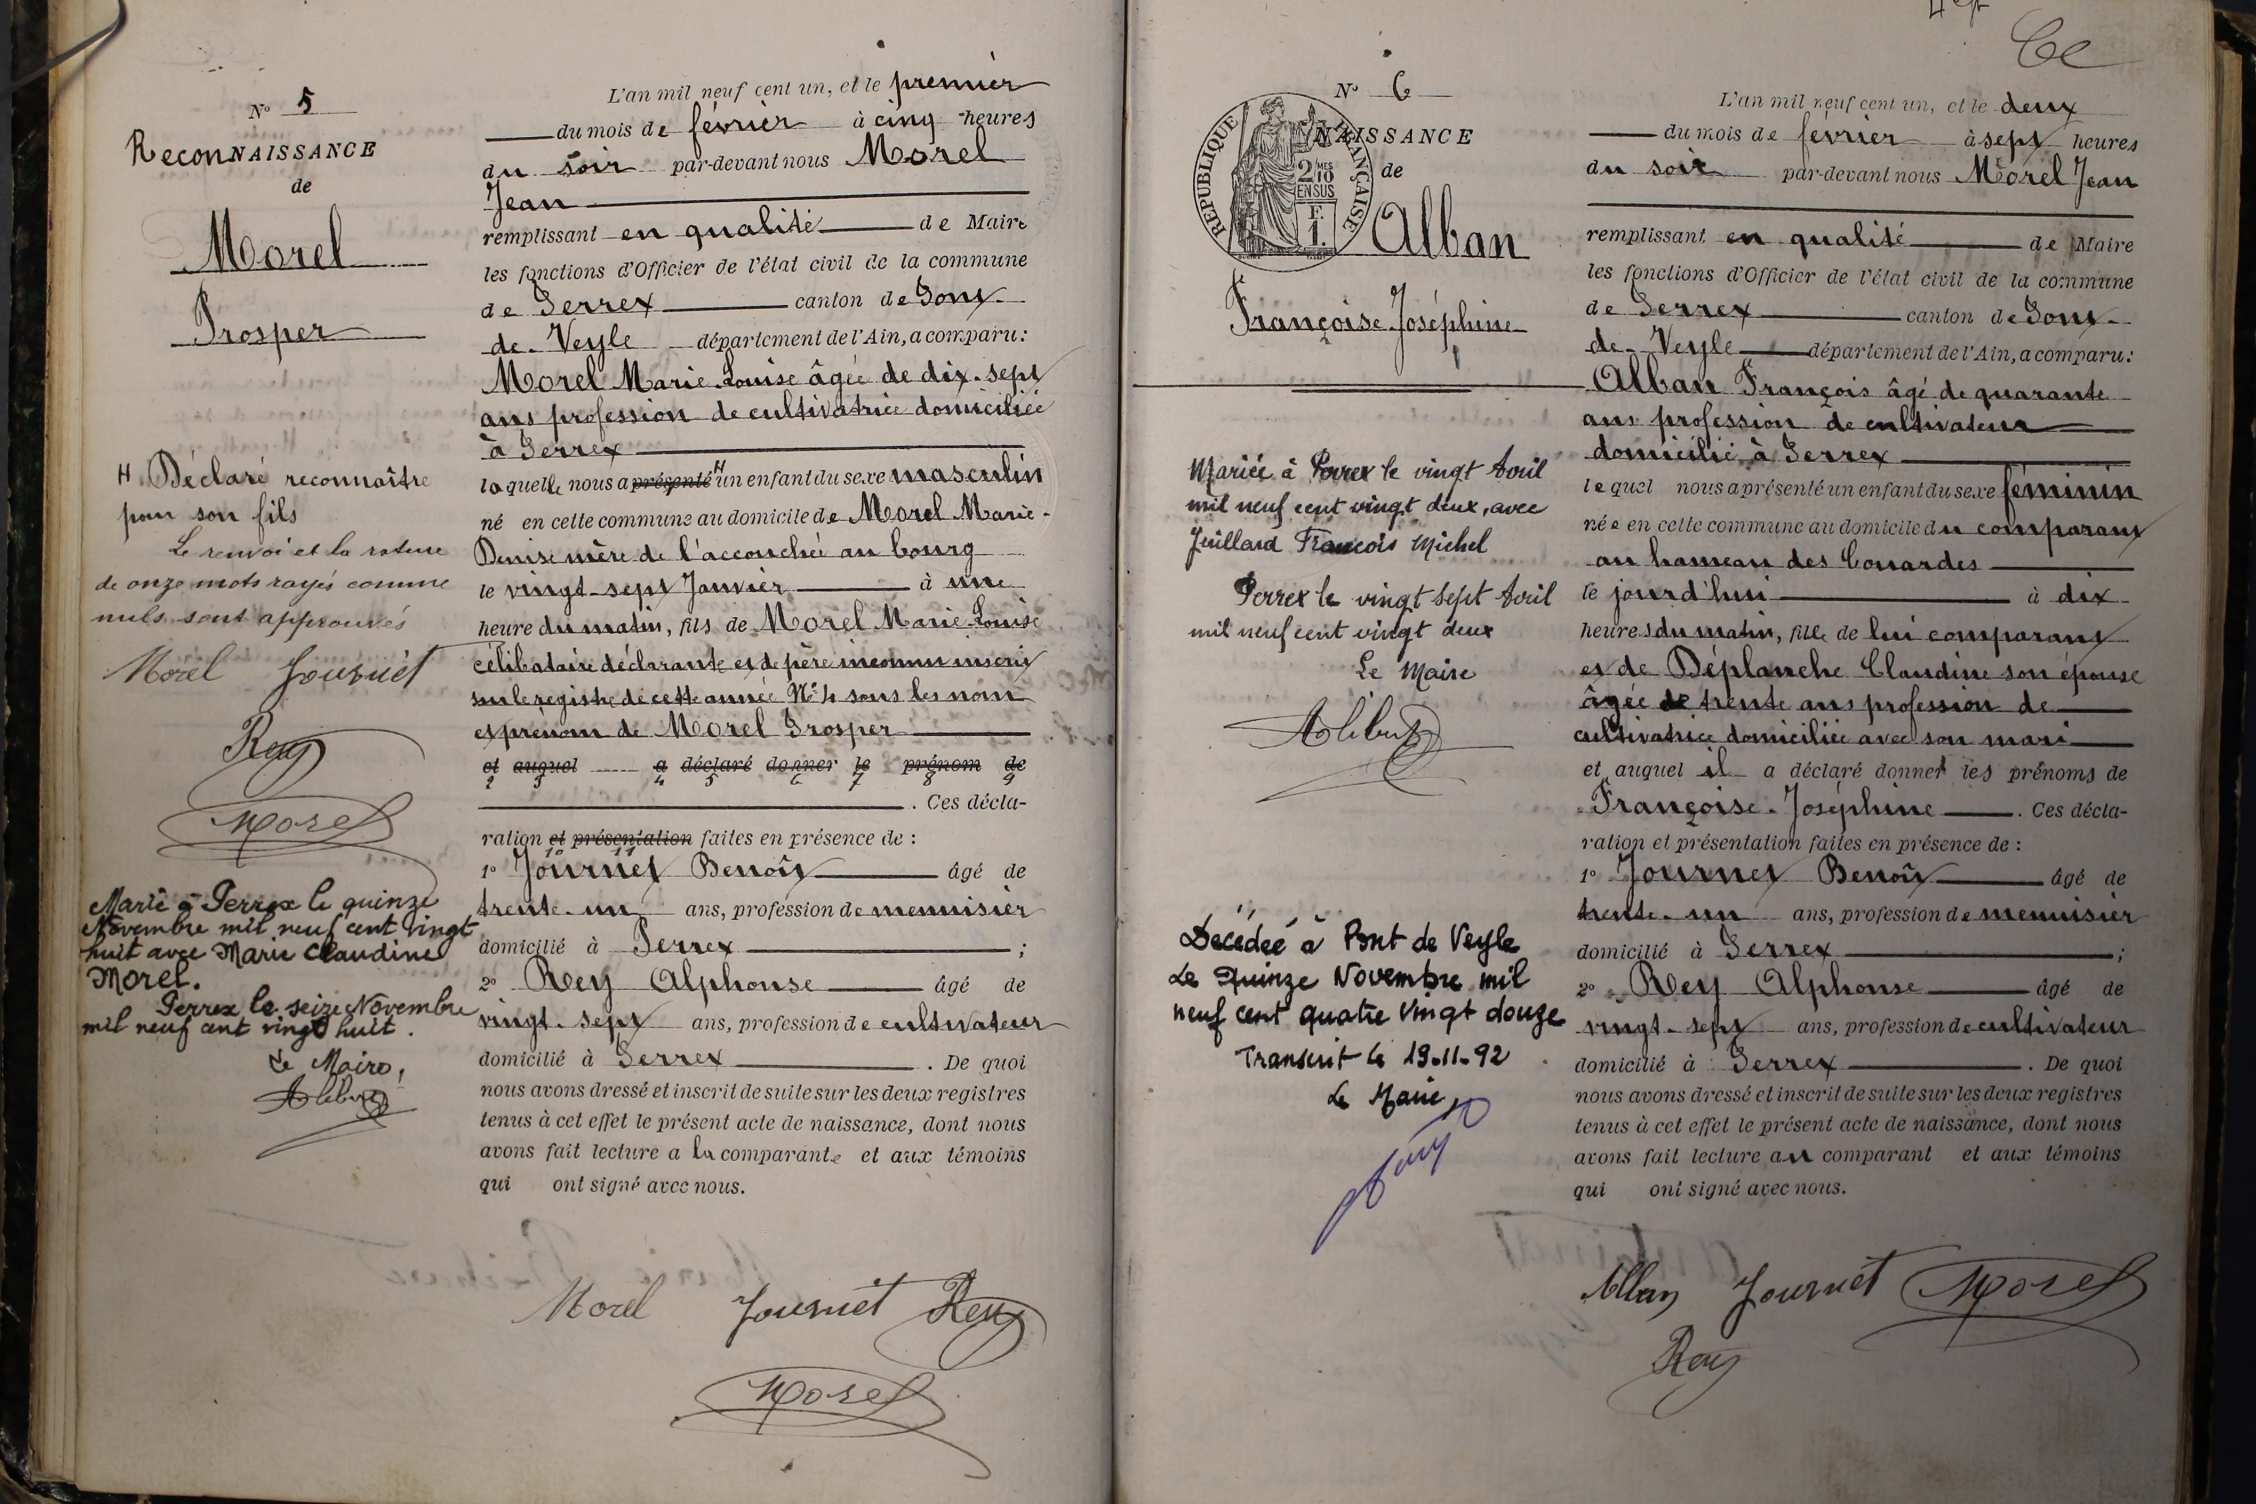 N° 5
ReconNAISSANCE
de
Morel
Prosper
L'an mil neuf cent un, et le premier
du mois de février à cinq heures
du soir par-devant nous Morel
Jean
remplissant en qualité de Maire
les fonctions d'Officier de l'état civil de la commune
de Perrex canton de Pont-
de-Veyle département de l'Ain, a comparu:
Morel Marie-Louise âgée de dix-sept
ans profession de cultivatrice domiciliée
à Perrex
laquelle nous a présenté H un enfant du sexe masculin
né en cette commune au domicile de Morel Marie-
Denise mère de l'accouchée au bourg
le vingt-sept Janvier à une
heure du matin, fils de Morel Marie-Louise
célibataire déclarante et de père inconnu inscrit
sur le registre de cette année N° 4 sous les nom
et prénom de Morel Prosper
et auquel a déclaré donner le prénom de
2 3 4 5 6 7 8 9
. Ces décla-
ration et présentation faites en présence de :
10 11
1° Journet Benoît âgé de
trente-un ans, profession de menuisier
domicilié à Perrex ;
2° Rey Alphonse âgé de
vingt-sept ans, profession de cultivateur
domicilié à Perrex . De quoi
nous avons dressé et inscrit de suite sur les deux registres
tenus à cet effet le présent acte de naissance, dont nous
avons fait lecture a la comparante et aux témoins
qui ont signé avec nous.
Morel Journet Rey
Morel
H Déclaré reconnaître
pour son fils
Le renvoi et la rature
de onze mots rayés comme
nuls sont approuvés
Morel Journet
Rey
Morel
Marié à Perrex le quinze
Novembre mil neuf cent vingt
huit avec Marie Claudine
Morel.
Perrex le seize Novembre
mil neuf cent vingt huit.
Le Maire,
N° 6
NAISSANCE
de
REPUBLIQUE FRANÇAISE
2 MES 10
EN SUS
F.
1.
Alban
Françoise-Joséphine
L'an mil neuf cent un, et le deux
du mois de février à sept heures
du soir par-devant nous Morel Jean
remplissant en qualité de Maire
les fonctions d'Officier de l'état civil de la commune
de Perrex canton de Pont-
de-Veyle département de l'Ain, a comparu:
Alban François âgé de quarante
ans profession de cultivateur
domicilié à Perrex
lequel nous a présenté un enfant du sexe féminin
née en cette commune au domicile du comparant
au hameau des Couardes
le jourd'hui à dix
heures du matin, fille de lui comparant
et de Déplanche Claudine son épouse
âgée de trente ans profession de
cultivatrice domiciliée avec son mari
et auquel il a déclaré donner les prénoms de
Françoise-Joséphine . Ces décla-
ration et présentation faites en présence de :
1° Journet Benoît âgé de
trente-un ans, profession de menuisier
domicilié à Perrex ;
2° Rey Alphonse âgé de
vingt-sept ans, profession de cultivateur
domicilié à Perrex . De quoi
nous avons dressé et inscrit de suite sur les deux registres
tenus à cet effet le présent acte de naissance, dont nous
avons fait lecture au comparant et aux témoins
qui ont signé avec nous.
Alban Journet Morel
Rey
Mariée à Perrex le vingt Avril
mil neuf cent vingt deux, avec
Juillard François Michel
Perrex le vingt sept Avril
mil neuf cent vingt deux
Le Maire
Décédée à Pont de Veyle
Le Quinze Novembre mil
neuf cent quatre vingt douze
Transcrit le 19-11-92
Le Maire,